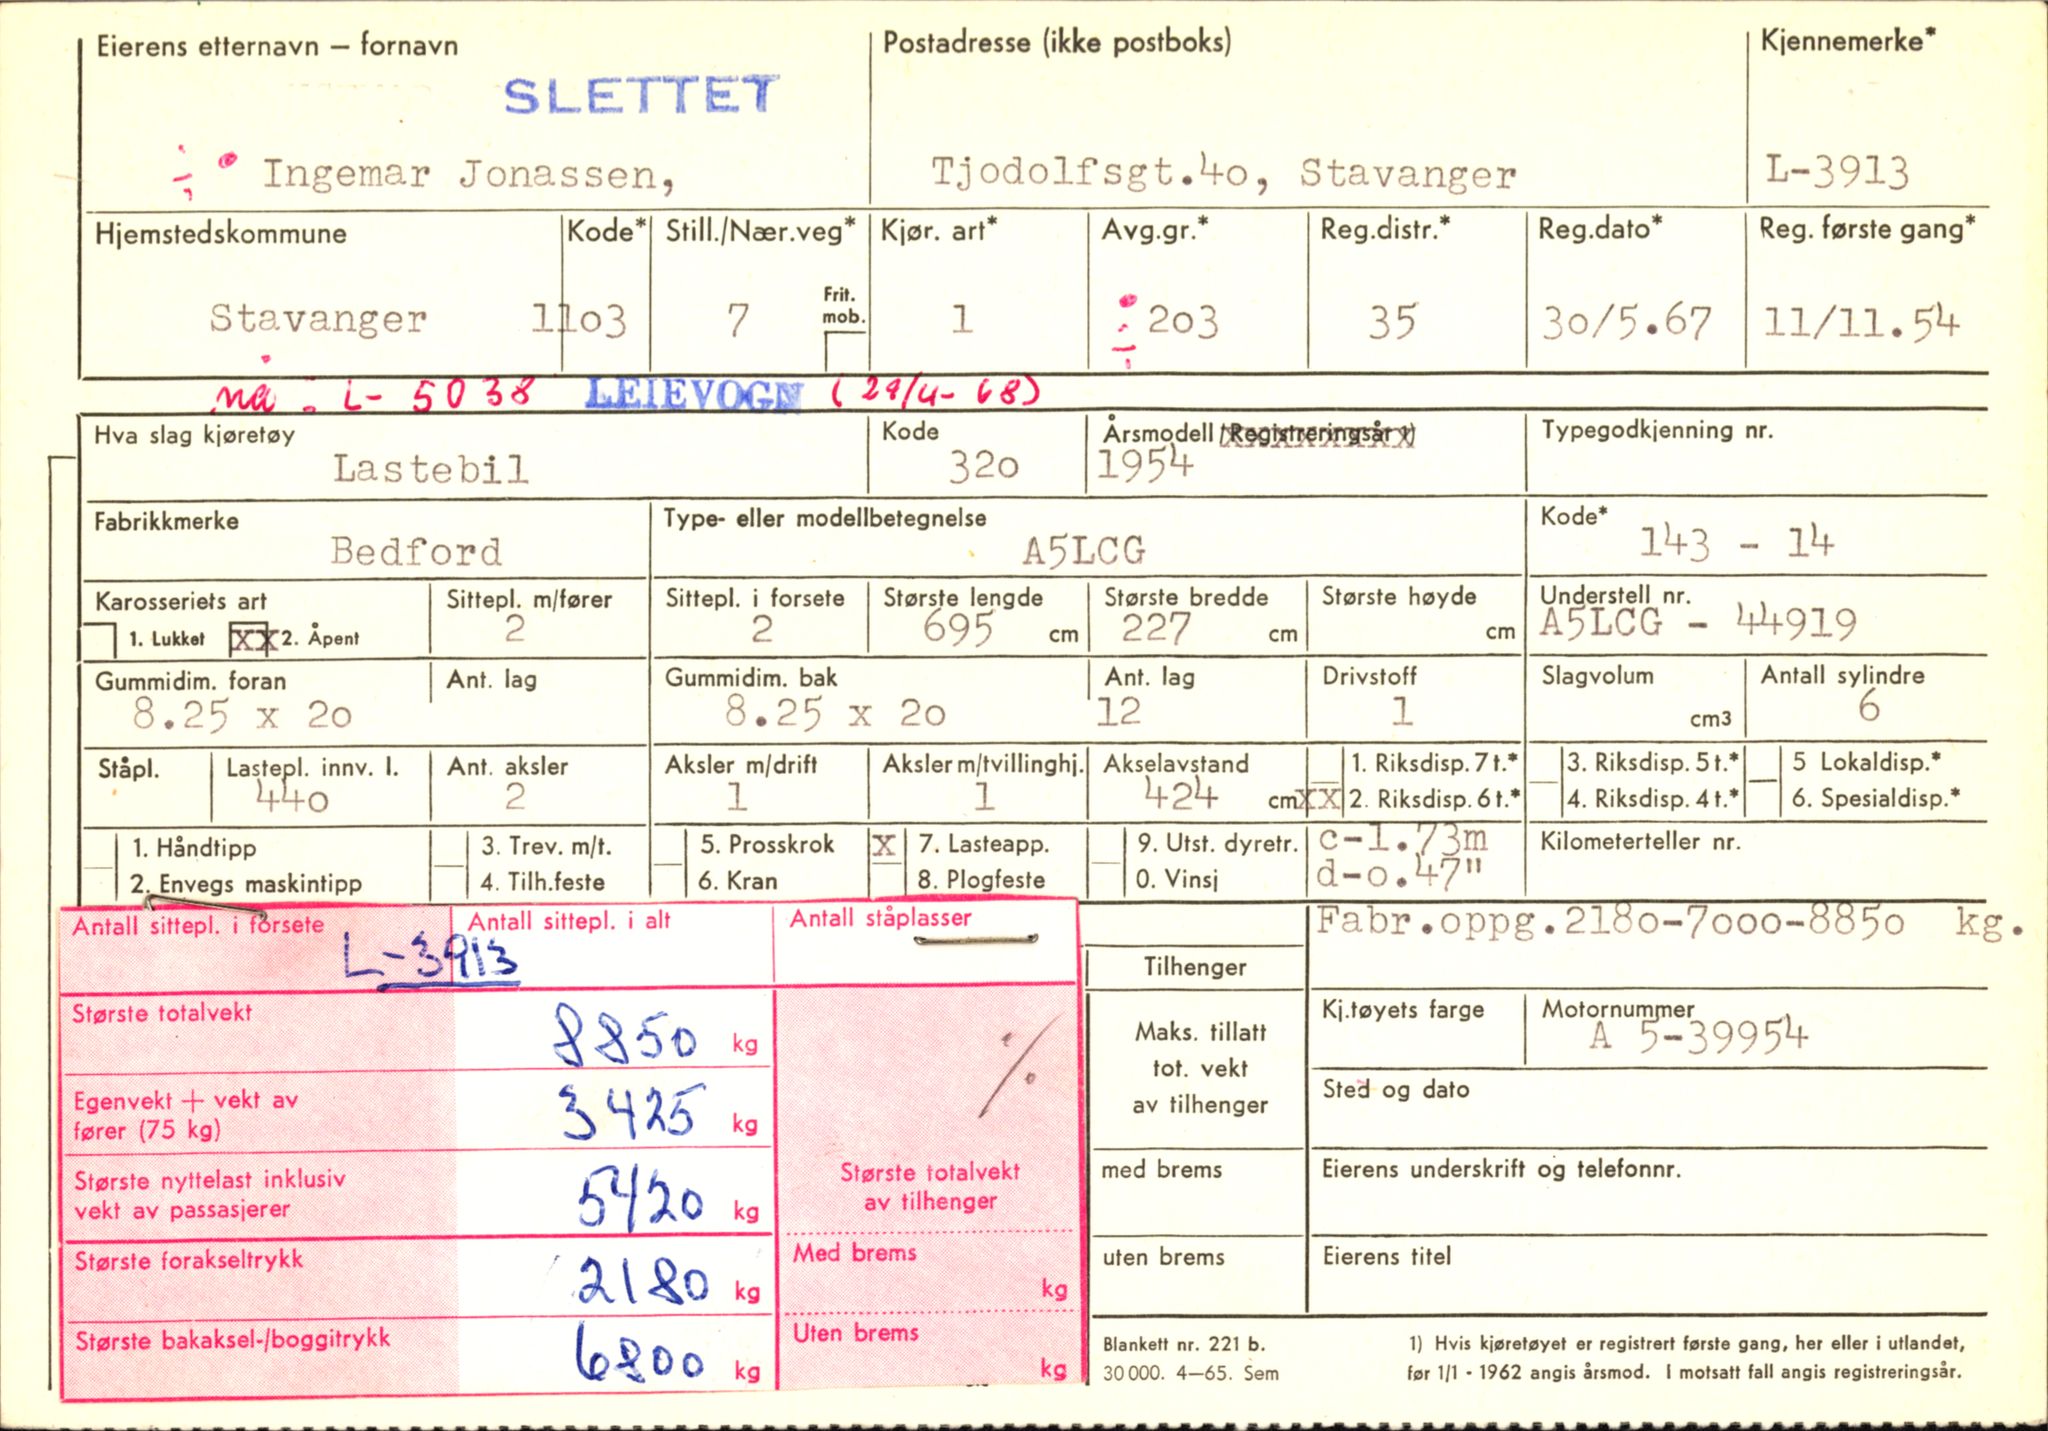 Eierens etternavn – fornavn Postadresse (ikke postboks) Kjennemerke*
SLETTET
Ingemar Jonassen, Tjodolfsgt.4o, Stavanger L-3913
Hjemstedskommune Kode* Still./Nær.veg* Kjør. art* Avg.gr.* Reg.distr.* Reg.dato* Reg. første gang*
Frit. mob.
Stavanger 11o3 7 1 2o3 35 3o/5.67 11/11.54
nå : L- 5038 LEIEVOGN (29/4- 68)
Hva slag kjøretøy Kode Årsmodell/Registreringsår 1) Typegodkjenning nr.
Lastebil 32o 1954
Fabrikkmerke Type- eller modellbetegnelse Kode*
Bedford A5LCG 143 - 14
Karosseriets art Sittepl. m/fører Sittepl. i forsete Største lengde Største bredde Største høyde Understell nr.
1. Lukket xx 2. Åpent 2 2 695 cm 227 cm cm A5LCG - 44919
Gummidim. foran Ant. lag Gummidim. bak Ant. lag Drivstoff Slagvolum Antall sylindre
8.25 x 2o 8.25 x 2o 12 1 cm3 6
Ståpl. Lastepl. innv. l. Ant. aksler Aksler m/drift Aksler m/tvillinghj. Akselavstand 1. Riksdisp. 7 t.* 3. Riksdisp. 5 t.* 5 Lokaldisp.*
44o 2 1 1 424 cm xx 2. Riksdisp. 6 t.* 4. Riksdisp. 4 t.* 6. Spesialdisp.*
1. Håndtipp 3. Trev. m/t. 5. Prosskrok x 7. Lasteapp. 9. Utst. dyretr. c-1.73m Kilometerteller nr.
2. Envegs maskintipp 4. Tilh.feste 6. Kran 8. Plogfeste 0. Vinsj d-o.47"
Antall sittepl. i forsete Antall sittepl. i alt Antall ståplasser Fabr.oppg.218o-7ooo-885o kg.
L-3913
Tilhenger
Største totalvekt 8850 kg Kj.tøyets farge Motornummer
Maks. tillatt A 5-39954
tot. vekt
av tilhenger
Egenvekt + vekt av
fører (75 kg) 3425 kg Sted og dato
Største nyttelast inklusiv
vekt av passasjerer 5420 kg
Største totalvekt
av tilhenger
med brems Eierens underskrift og telefonnr.
Største forakseltrykk 2180 kg Med brems kg uten brems Eierens titel
Største bakaksel-/boggitrykk 6800 kg Uten brems kg
Blankett nr. 221 b. 1) Hvis kjøretøyet er registrert første gang, her eller i utlandet,
30 000. 4–65. Sem før 1/1 - 1962 angis årsmod. I motsatt fall angis registreringsår.